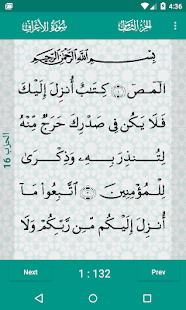 4:36
سُورَةُ الأَعْرَافِ الجُزْءُ الثَّامِنُ
بِسْمِ ٱللَّهِ ٱلرَّحْمَٰنِ ٱلرَّحِيمِ
الٓمٓصٓ ۝١ كِتَٰبٌ أُنزِلَ إِلَيْكَ
فَلَا يَكُن فِى صَدْرِكَ حَرَجٌ مِّنْهُ
لِتُنذِرَ بِهِۦ وَذِكْرَىٰ
لِلْمُؤْمِنِينَ ۝٢ ٱتَّبِعُوا۟ مَآ
أُنزِلَ إِلَيْكُم مِّن رَّبِّكُمْ وَلَا
الحزب 16
Next 1 : 132 Prev